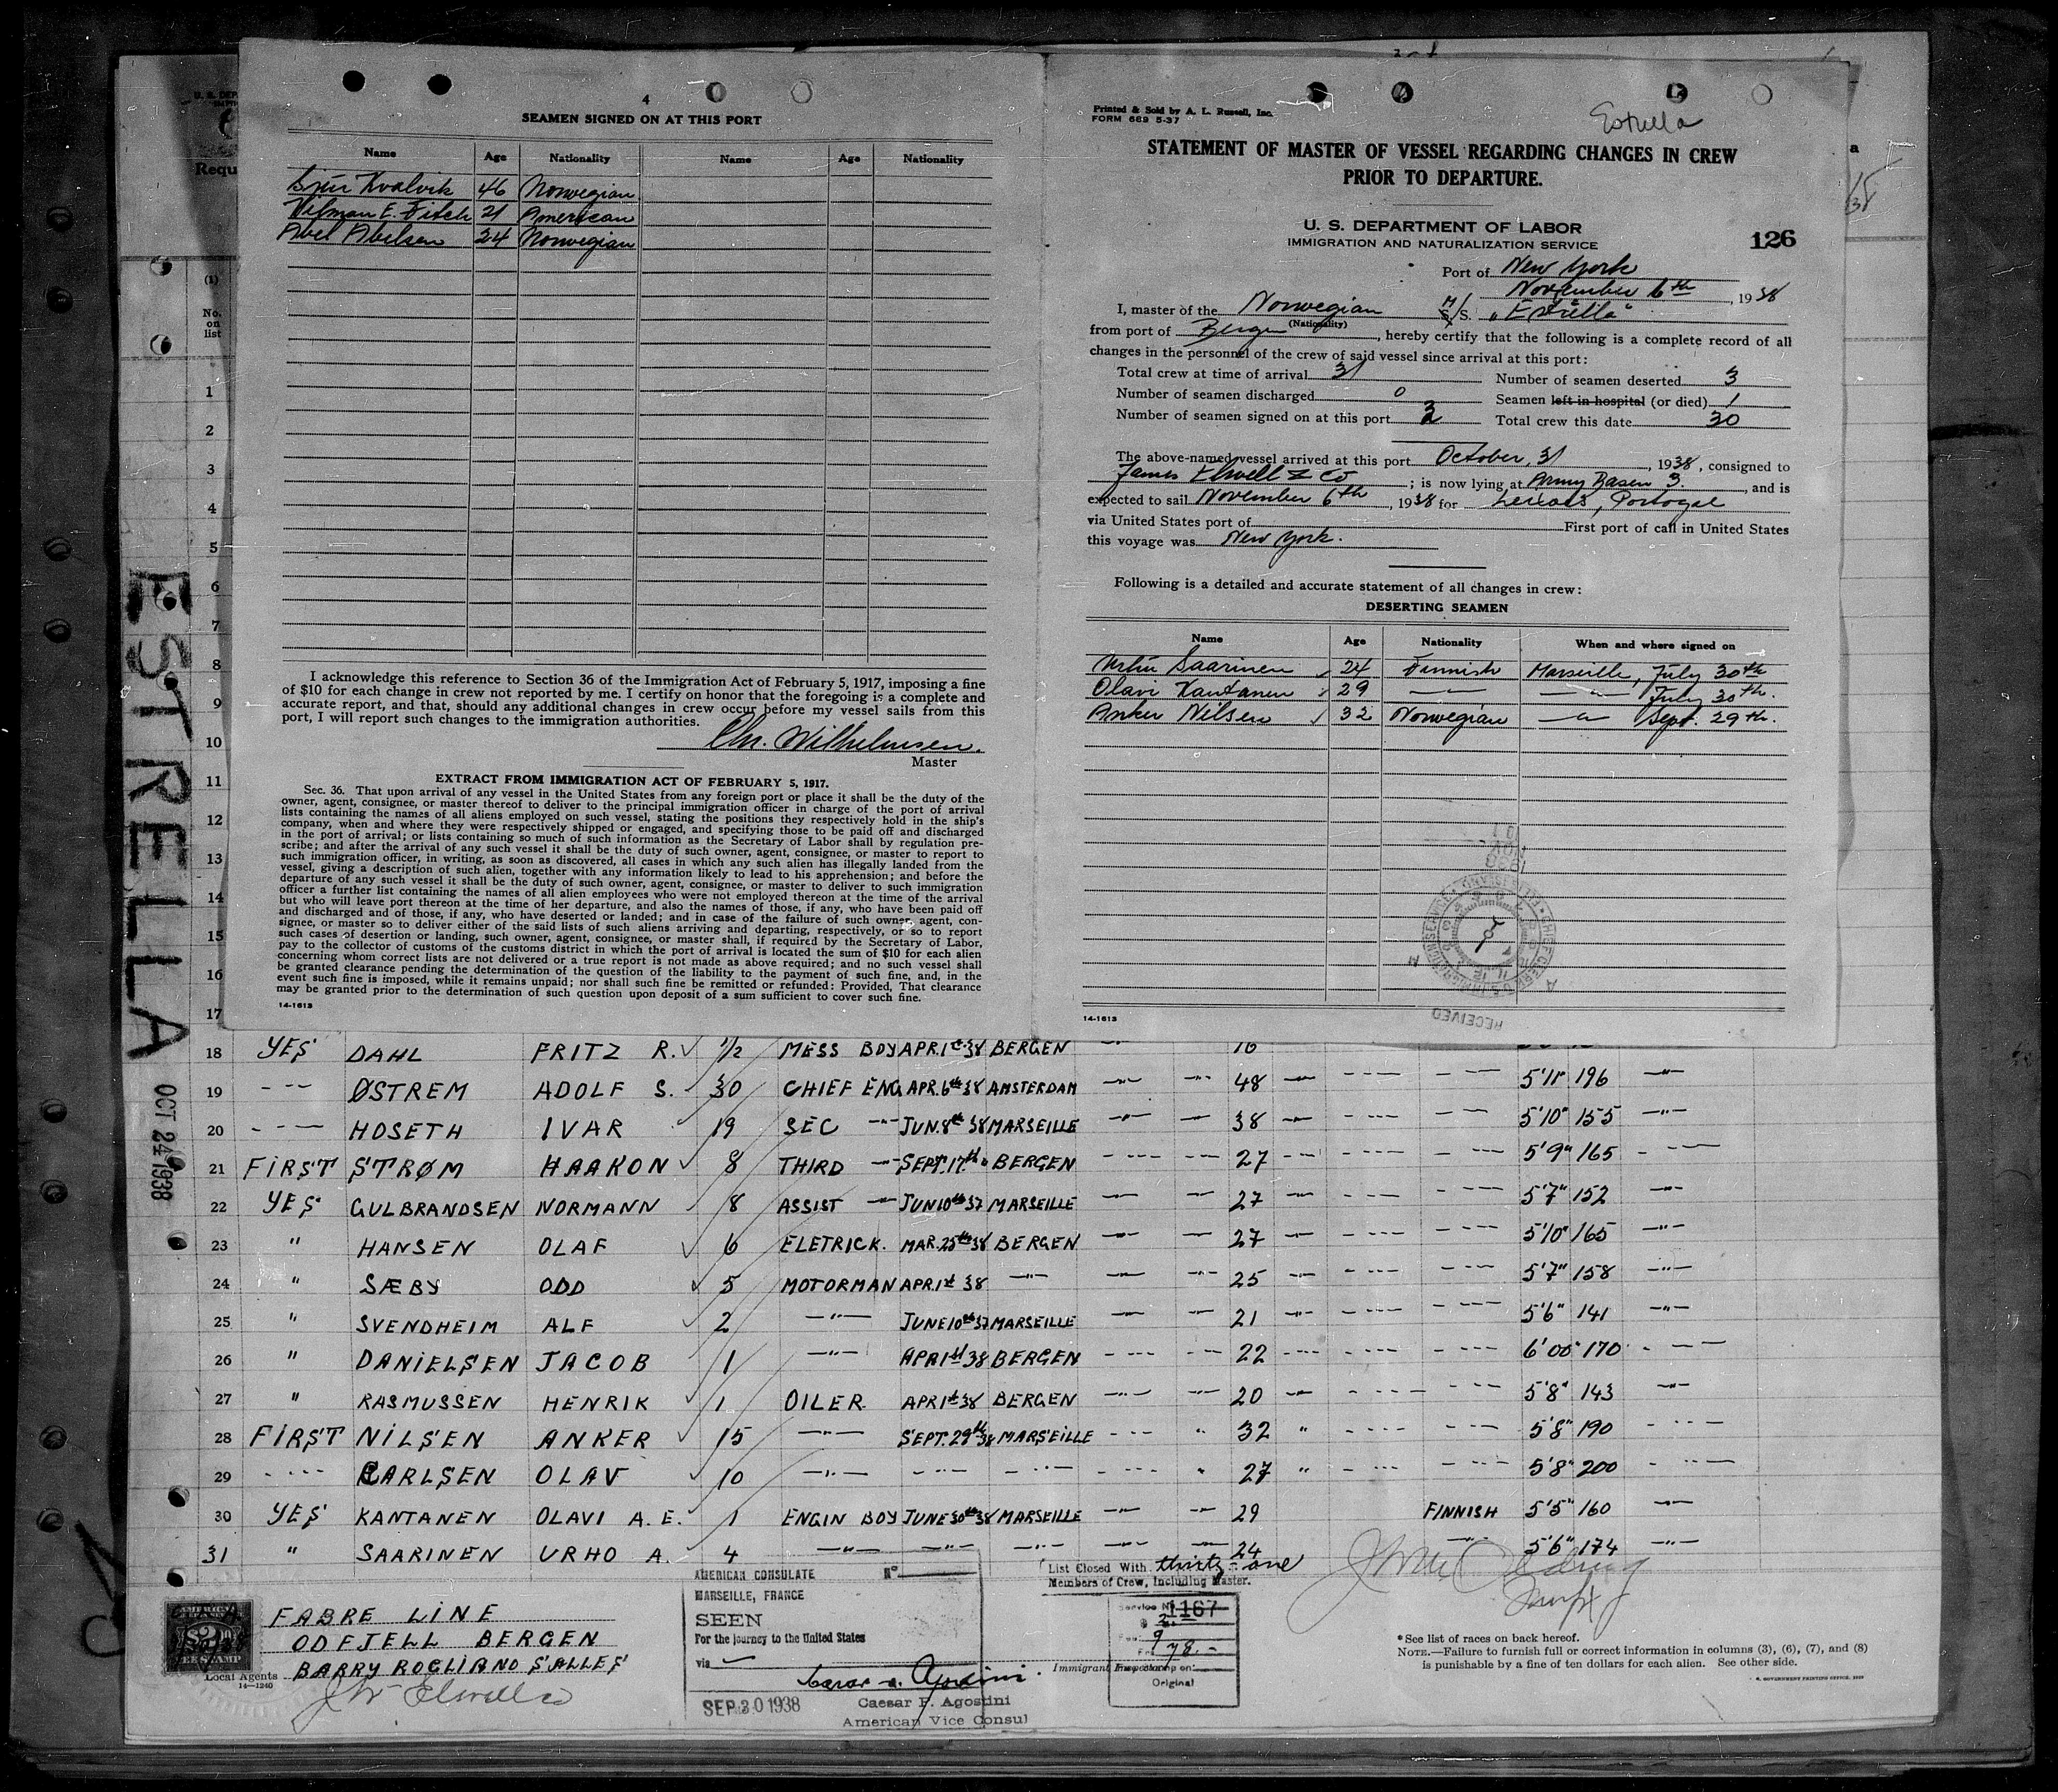 4
SEAMEN SIGNED ON AT THIS PORT
Name Age Nationality Name Age Nationality
Kvalvik 46 Norwegian
Vilman E. Fitch 21 American
Abel Abelsen 24 Norwegian
I acknowledge this reference to Section 36 of the Immigration Act of February 5, 1917, imposing a fine
of $10 for each change in crew not reported by me. I certify on honor that the foregoing is a complete and
accurate report, and that, should any additional changes in crew occur before my vessel sails from this
port, I will report such changes to the immigration authorities.
Chr. Wilhelmsen.
Master
EXTRACT FROM IMMIGRATION ACT OF FEBRUARY 5, 1917.
Sec. 36. That upon arrival of any vessel in the United States from any foreign port or place it shall be the duty of the
owner, agent, consignee, or master thereof to deliver to the principal immigration officer in charge of the port of arrival
lists containing the names of all aliens employed on such vessel, stating the positions they respectively hold in the ship's
company, when and where they were respectively shipped or engaged, and specifying those to be paid off and discharged
in the port of arrival; or lists containing so much of such information as the Secretary of Labor shall by regulation pre-
scribe; and after the arrival of any such vessel it shall be the duty of such owner, agent, consignee, or master to report to
such immigration officer, in writing, as soon as discovered, all cases in which any such alien has illegally landed from the
vessel, giving a description of such alien, together with any information likely to lead to his apprehension; and before the
departure of any such vessel it shall be the duty of such owner, agent, consignee, or master to deliver to such immigration
officer a further list containing the names of all alien employees who were not employed thereon at the time of the arrival
but who will leave port thereon at the time of her departure, and also the names of those, if any, who have been paid off
and discharged and of those, if any, who have deserted or landed; and in case of the failure of such owner, agent, con-
signee, or master so to deliver either of the said lists of such aliens arriving and departing, respectively, or so to report
such cases of desertion or landing, such owner, agent, consignee, or master shall, if required by the Secretary of Labor,
pay to the collector of customs of the customs district in which the port of arrival is located the sum of $10 for each alien
concerning whom correct lists are not delivered or a true report is not made as above required; and no such vessel shall
be granted clearance pending the determination of the question of the liability to the payment of such fine, and, in the
event such fine is imposed, while it remains unpaid; nor shall such fine be remitted or refunded: Provided, That clearance
may be granted prior to the determination of such question upon deposit of a sum sufficient to cover such fine.
14-1613
Printed & Sold by A. L. Russell, Inc.
FORM 689 5-37
Estrella
STATEMENT OF MASTER OF VESSEL REGARDING CHANGES IN CREW
PRIOR TO DEPARTURE.
U. S. DEPARTMENT OF LABOR
IMMIGRATION AND NATURALIZATION SERVICE
126
Port of New York
November 6th, 1938
I, master of the Norwegian M/S. "Estrella"
(Nationality)
from port of Bergen, hereby certify that the following is a complete record of all
changes in the personnel of the crew of said vessel since arrival at this port:
Total crew at time of arrival 31 Number of seamen deserted 3
Number of seamen discharged 0 Seamen left in hospital (or died) 1
Number of seamen signed on at this port 3 Total crew this date 30
The above-named vessel arrived at this port October, 31, 1938, consigned to
James Elwell & Co; is now lying at Army Basen 3., and is
expected to sail November 6th, 1938 for Leixoes, Portogal
via United States port of First port of call in United States
this voyage was New York.
Following is a detailed and accurate statement of all changes in crew:
DESERTING SEAMEN
Name Age Nationality When and where signed on
Saarinen 24 Finnish Marseille, July 30th
Olavi Kantanen 29 —"— —"— July 30th.
Anker Nilsen 32 Norwegian —"— Sept. 29th.
RECEIVED
14-1613
Requ
(1)
No.
on
list
1
2
3
4
5
6
7
8
9
10
11
12
13
14
15
16
17
ESTRELLA
OCT 24 1938
18 YES DAHL FRITZ R. 1/2 MESS BOY APR.1st 38 BERGEN —"— 16
19 --- ØSTREM ADOLF S. 30 CHIEF ENG APR.6th 38 AMSTERDAM —"— —"— 48 —"— 5'11" 196 —"—
20 --- HOSETH IVAR 19 SEC —"— JUN.8th 38 MARSEILLE —"— —"— 38 —"— 5'10" 155 —"—
21 FIRST STRØM HAAKON 8 THIRD —"— SEPT.17th " BERGEN —"— —"— 27 —"— 5'9" 165 —"—
22 YES GULBRANDSEN NORMANN 8 ASSIST —"— JUN10th 37 MARSEILLE —"— —"— 27 —"— 5'7" 152 —"—
23 " HANSEN OLAF 6 ELETRICK. MAR.25th 38 BERGEN —"— —"— 27 —"— 5'10" 165 —"—
24 " SÆBY ODD 5 MOTORMAN APR.1st 38 —"— —"— —"— 25 —"— 5'7" 158 —"—
25 " SVENDHEIM ALF 2 —"— JUNE10th 37 MARSEILLE —"— —"— 21 —"— 5'6" 141 —"—
26 " DANIELSEN JACOB 1 —"— APR1st 38 BERGEN —"— —"— 22 —"— 6'00" 170 —"—
27 " RASMUSSEN HENRIK 1 OILER APR1st 38 BERGEN —"— —"— 20 —"— 5'8" 143 —"—
28 FIRST NILSEN ANKER 15 —"— SEPT.29th 38 MARSEILLE —"— " 32 " 5'8" 190 —"—
29 ---- CARLSEN OLAV 10 —"— —"— —"— —"— " 27 " 5'8" 200 —"—
30 YES KANTANEN OLAVI A.E. 1 ENGIN BOY JUNE 30th 38 MARSEILLE —"— —"— 29 FINNISH 5'5" 160 —"—
31 " SAARINEN URHO A. 4 —"— —"— —"— —"— —"— 24 —"— 5'6" 174 —"—
FABRE LINE
ODFJELL BERGEN
BARRY ROGLIANO SALLES
Local Agents
14-1240
AMERICAN CONSULATE
Nº
MARSEILLE, FRANCE
SEEN
For the journey to the United States
via
SEP 20 1938
Caesar F. Agostini
American Vice Consul
List Closed With thirty-one
Members of Crew, Including Master.
Service Nº 1167
Original
Immigrant Inspector
*See list of races on back hereof.
NOTE.—Failure to furnish full or correct information in columns (3), (6), (7), and (8)
is punishable by a fine of ten dollars for each alien. See other side.